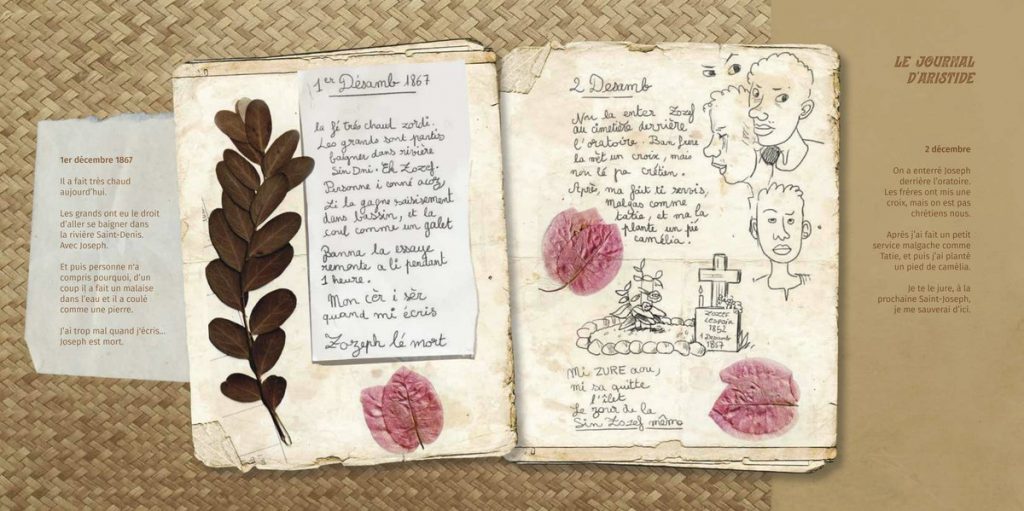 1er décembre 1867
Il a fait très chaud
aujourd'hui.
Les grands ont eu le droit
d'aller se baigner dans
la rivière Saint-Denis.
Avec Joseph.
Et puis personne n'a
compris pourquoi, d'un
coup il a fait un malaise
dans l'eau et il a coulé
comme une pierre.
J'ai trop mal quand j'écris...
Joseph est mort.
1er Désamb 1867
la fé trés chaud zordi.
Les grands sont partis
baigner dans rivière
Sin Dni. Ek Zozef.
Personne i conné acoz
Li la gagne saisisement
dans bassin, et la
coul comme un galet
Banna la essaye
remonte a li pendant
1 heure.
Mon cèr i sèr
quand mi écris
Zozeph lé mort
2 Desamb
Nu la enter Zozef
au cimetière derrière
l'oratoire. Ban frère
la mèt un croix, mais
nou lé pa crétien.
Après, ma fait ti servis,
malgas comme
tatie, et ma la
plante un pié
camélia.
ZOZEF
LESPOIR
1852
1 Desamb
1867
Mi ZURE aou,
mi sa quitte
l'îlet
Le zour de la
Sin Zozef même
LE JOURNAL
D'ARISTIDE
2 décembre
On a enterré Joseph
derrière l'oratoire.
Les frères ont mis une
croix, mais on est pas
chrétiens nous.
Après j'ai fait un petit
service malgache comme
Tatie, et puis j'ai planté
un pied de camélia.
Je te le jure, à la
prochaine Saint-Joseph,
je me sauverai d'ici.